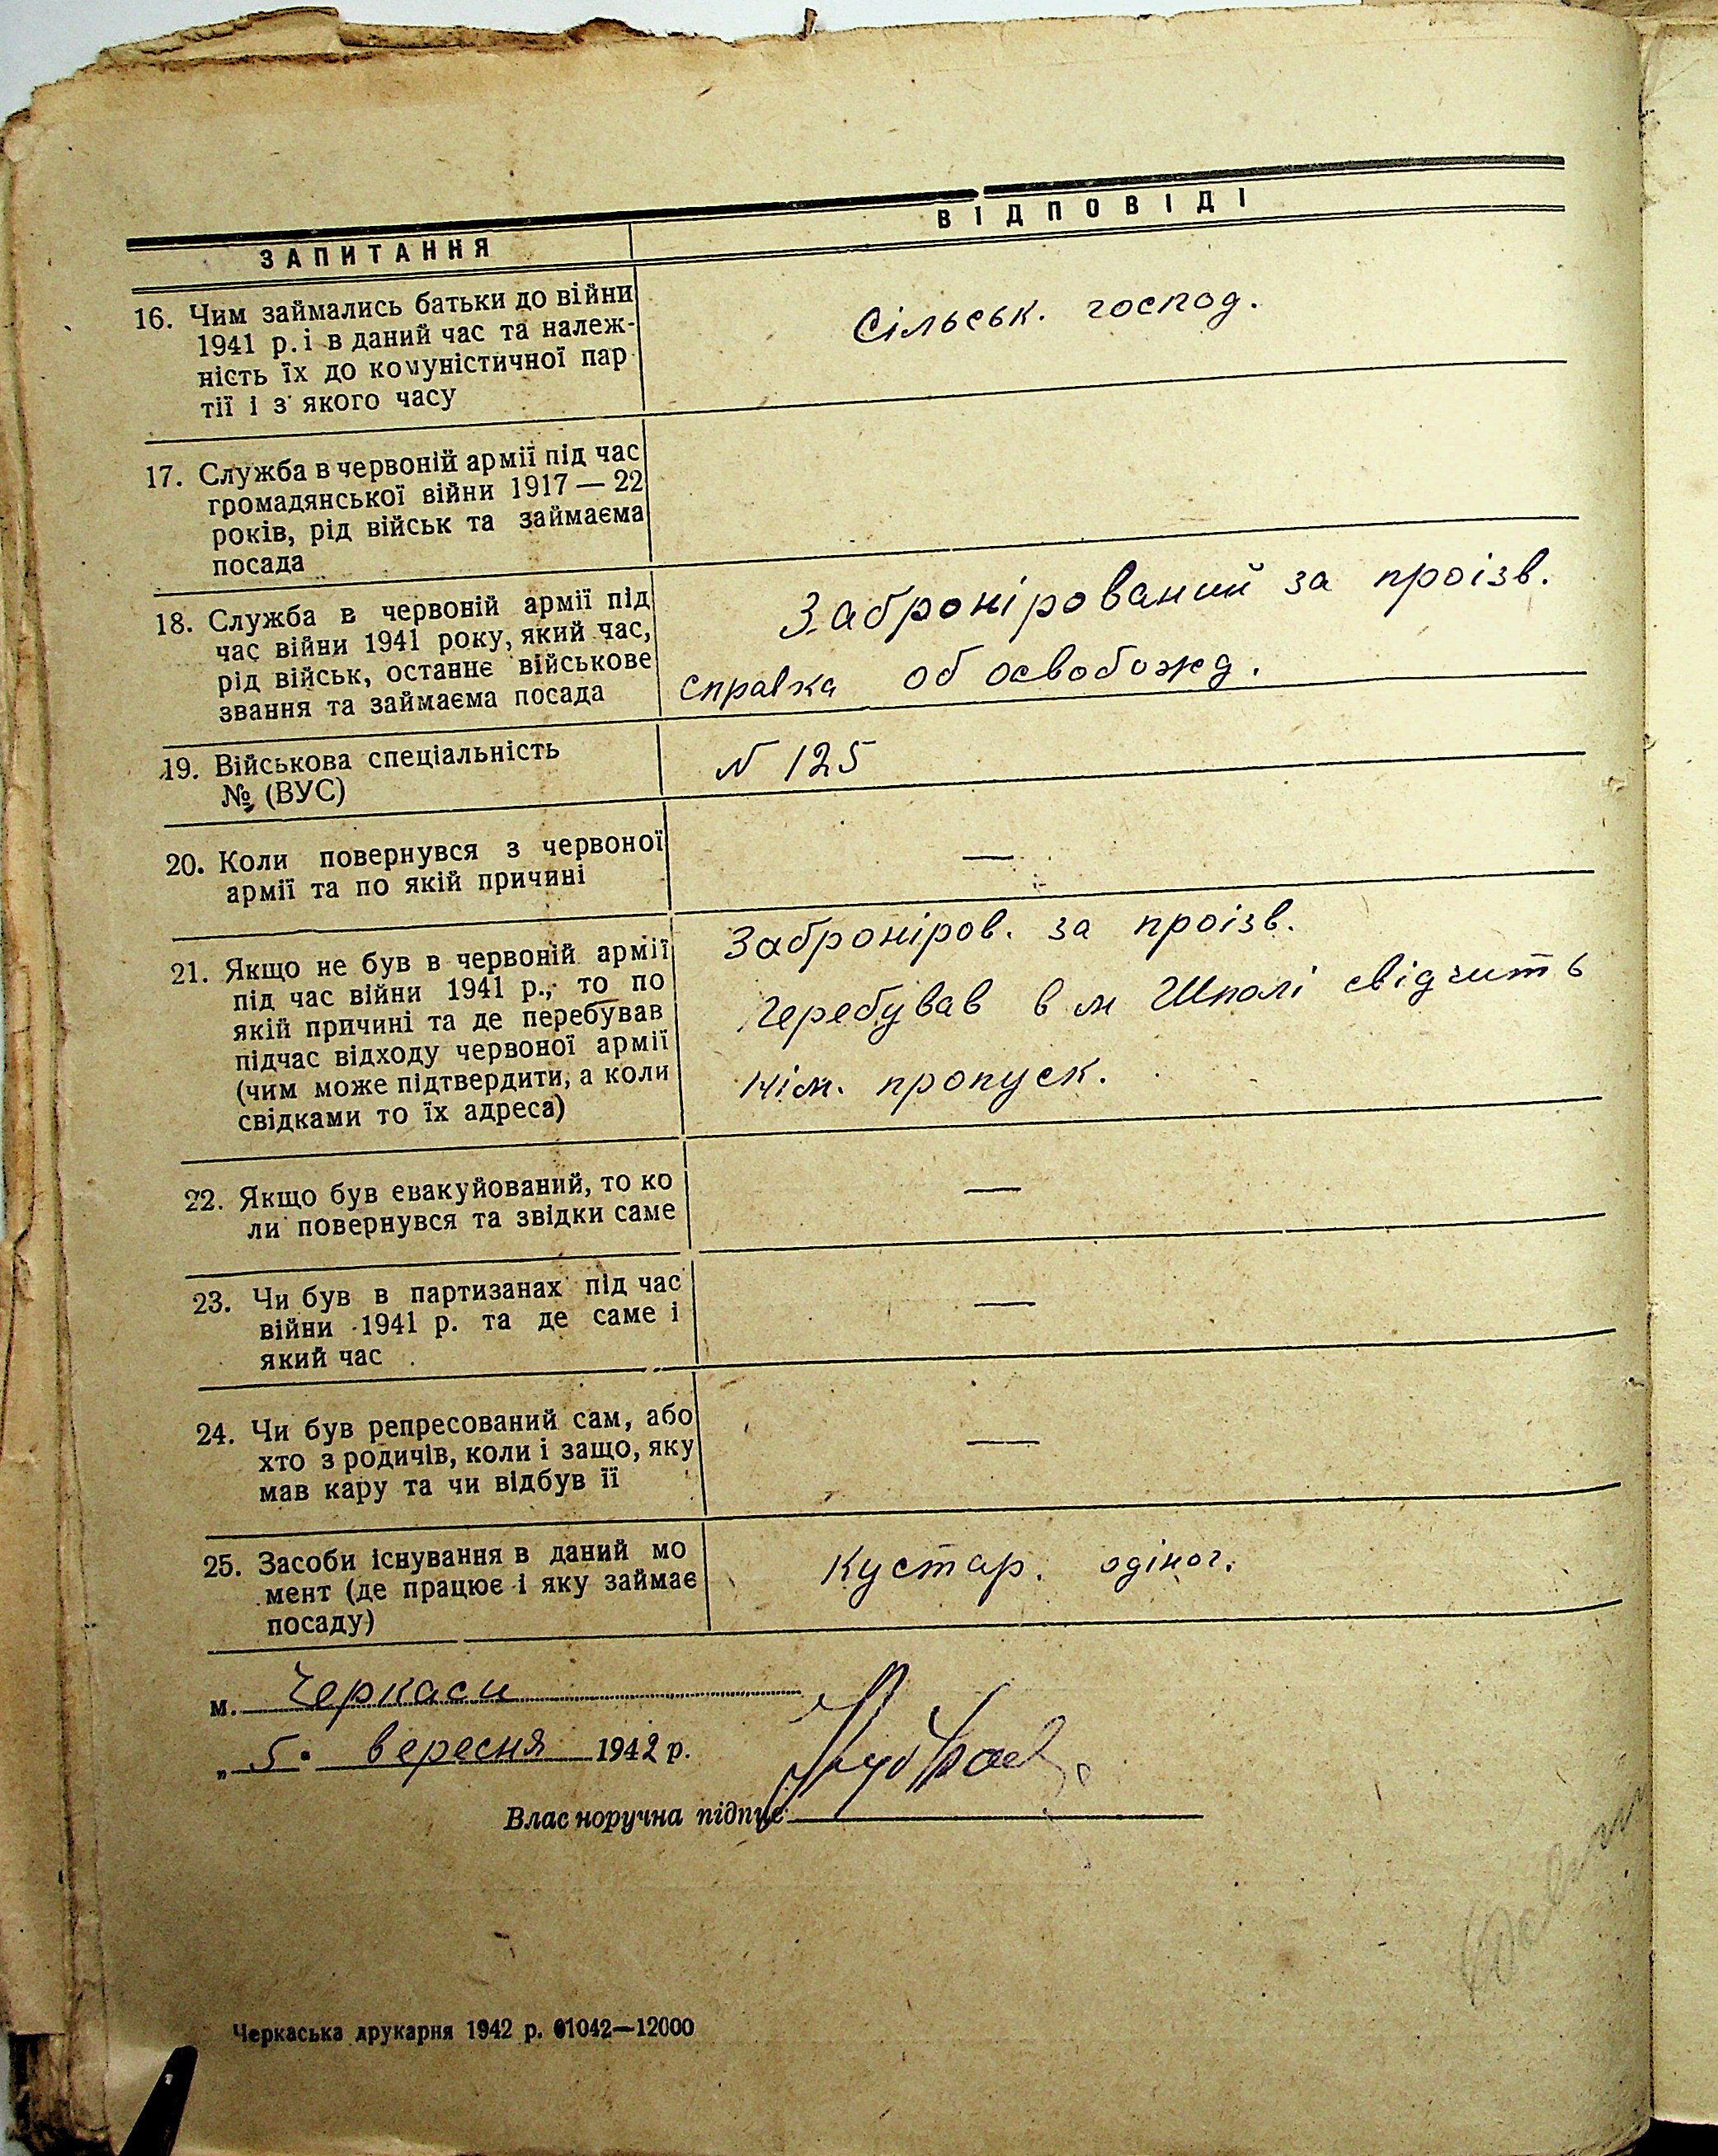 ЗАПИТАННЯ
ВІДПОВІДІ
16. Чим займались батьки до війни
1941 р. і в даний час та належ-
ність їх до комуністичної пар
тії і з якого часу
Сільськ. господ.
17. Служба в червоній армії під час
громадянської війни 1917 — 22
років, рід військ та займаєма
посада
18. Служба в червоній армії під
час війни 1941 року, який час,
рід військ, останнє військове
звання та займаєма посада
Забронірований за произв.
справка об освобожд.
19. Військова спеціальність
№ (ВУС)
N 125
20. Коли повернувся з червоної
армії та по якій причині
—
21. Якщо не був в червоній армії
під час війни 1941 р., то по
якій причині та де перебував
підчас відходу червоної армії
(чим може підтвердити, а коли
свідками то їх адреса)
Заброніров. за проізв.
Перебував в м Шполі свідчить
нім. пропуск.
22. Якщо був евакуйований, то ко
ли повернувся та звідки саме
—
23. Чи був в партизанах під час
війни 1941 р. та де саме і
який час
—
24. Чи був репресований сам, або
хто з родичів, коли і защо, яку
мав кару та чи відбув її
—
25. Засоби існування в даний мо
мент (де працює і яку займає
посаду)
Кустар. одіног.
м. Черкаси
„ 5. вересня 1942 р.
Власноручна підпис
Черкаська друкарня 1942 р. 01042—12000